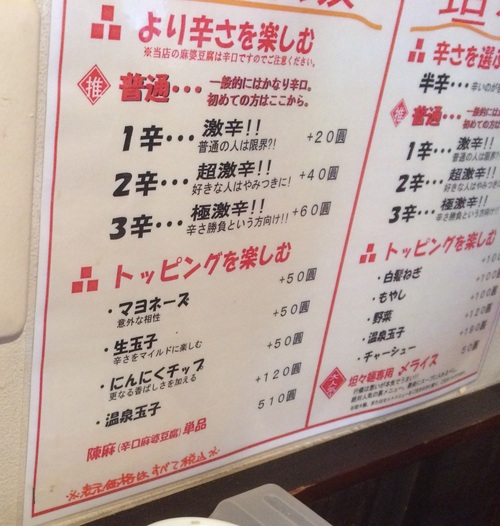 より辛さを楽しむ
※当店の麻婆豆腐は辛口ですのでご注意ください。
推 普通… 一般的にはかなり辛口。
初めての方はここから。
1辛… 激辛!! +20圓
普通の人は限界?!
2辛… 超激辛!! +40圓
好きな人はやみつきに!
3辛… 極激辛!! +60圓
辛さ勝負という方向け!!
トッピングを楽しむ
・マヨネーズ +50圓
意外な相性
・生玉子 +50圓
辛さをマイルドに楽しむ
・にんにくチップ +50圓
更なる香ばしさを加える
・温泉玉子 +120圓
陳麻(辛口麻婆豆腐)単品 510圓
※表示価格はすべて税込※
辛さを選ぶ
半辛…
推 普通…
1辛… 激辛!!
普通の人は限界?!
2辛… 超激辛
好きな人はやみつ
3辛… 極激辛!!
辛さ勝負という方
トッピングを楽しむ
・白髪ねぎ
・もやし
・野菜
・温泉玉子
・チャーシュー
坦々麺専用 〆ライス 50圓